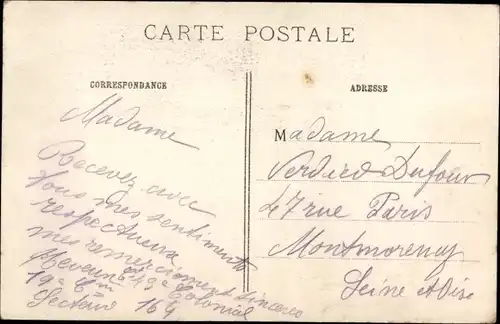 CARTE POSTALE
CORRESPONDANCE
ADRESSE
Madame
Recevez avec
tous mes sentiments
respectueux
mes remerciements sincères
43e Colonial
19e Cie
Secteur 164
Madame
Verdied Dufour
47 rue Paris
Montmorency
Seine et Oise